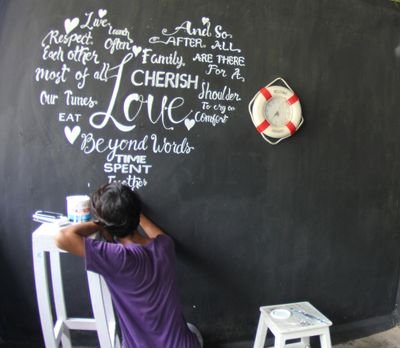 Live
Laugh
Respect
Often
Each other
most of all
Our Times
EAT
Love
Family,
CHERISH
And So
AFTER ALL
ARE THERE
For A
Shoulder
To cry on
Comfort
Beyond Words
TIME
SPENT
Together